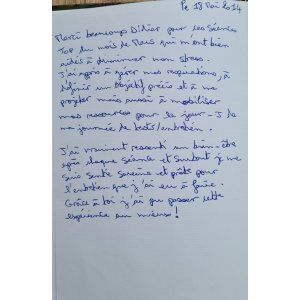 Le 18 Mai 2014
Merci beaucoup Didier pour les séances
TOP du mois de Mars qui m'ont bien
aidés à diminuer mon stress.
J'ai appris à gérer mes respirations, à
définir un objectif précis et à me
projeter mais aussi à mobiliser
mes ressources pour le jour-J de
ma journée de tests/entretien.
J'ai vraiment ressenti un bien-être
après chaque séance et surtout je me
suis sentie sereine et prête pour
l'entretien que j'ai eu à faire.
Grâce à toi j'ai pu passer cette
expérience au mieux!